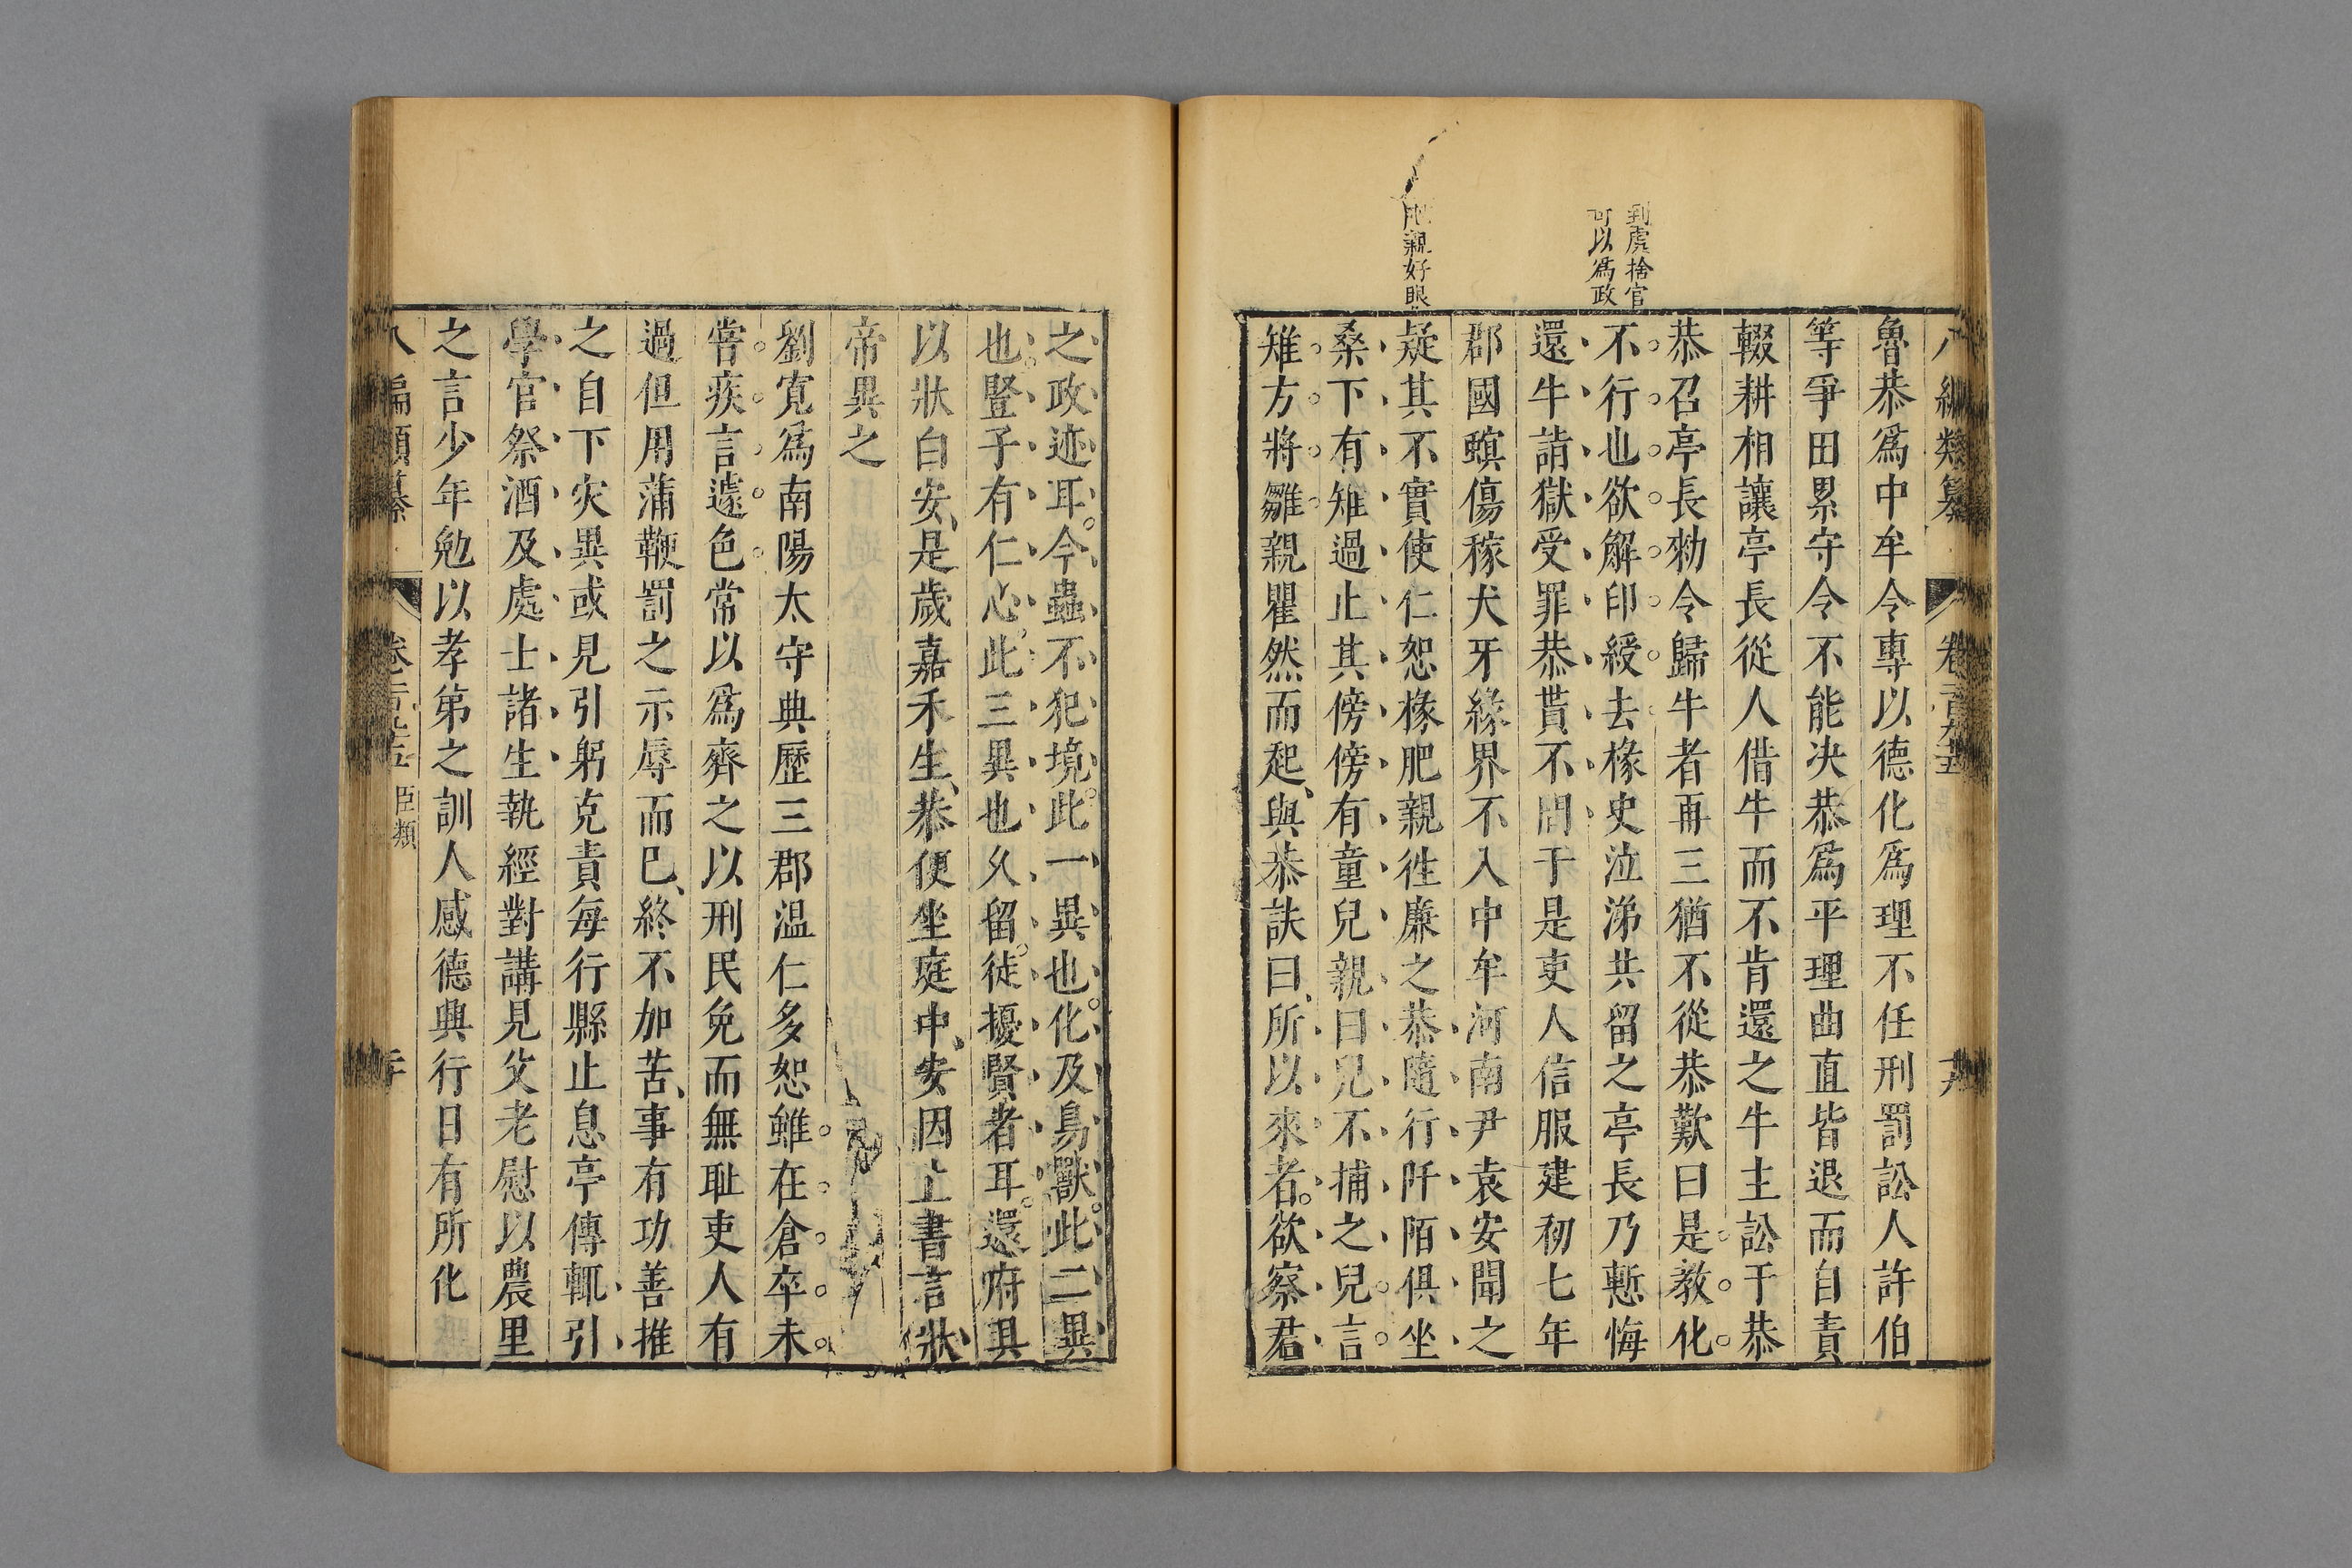 到處捨官
可以爲政
肥親好眼
八編類纂
卷一百九十五
魯恭爲中牟令專以德化爲理不任刑罰訟人許伯
等爭田累守令不能决恭爲平理曲直皆退而自責
輟耕相讓亭長從人借牛而不肯還之牛主訟于恭
恭召亭長勑令歸牛者再三猶不從恭歎曰是教化
不行也欲解印綬去掾史泣涕共留之亭長乃慙悔
還牛詣獄受罪恭貰不問于是吏人信服建初七年
郡國螟傷稼犬牙緣界不入中牟河南尹袁安聞之
疑其不實使仁恕掾肥親徃廉之恭隨行阡陌俱坐
桑下有雉過止其傍傍有童兒親曰兒不捕之兒言
雉方將雛親瞿然而起與恭訣曰所以來者欲察君
之政迹耳今蟲不犯境此一異也化及鳥獸此二異
也豎子有仁心此三異也久留徒擾賢者耳還府具
以狀白安是歲嘉禾生恭便坐庭中安因上書言狀
帝異之
劉寬爲南陽太守典歷三郡温仁多恕雖在倉卒未
嘗疾言遽色常以爲齊之以刑民免而無耻吏人有
過但用蒲鞭罰之示辱而已終不加苦事有功善推
之自下灾異或見引躬克責每行縣止息亭傳輒引
學官祭酒及處士諸生執經對講見父老慰以農里
之言少年勉以孝第之訓人感德興行日有所化
八編類纂
臣類